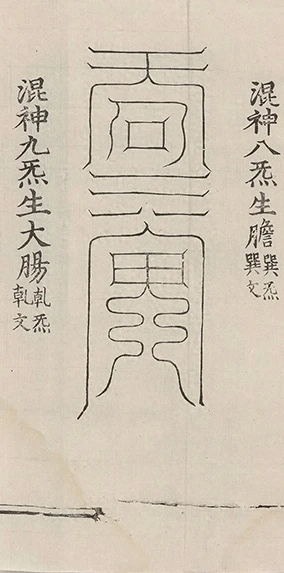 混神八炁生膽
巽炁
巽文
混神九炁生大腸
乹炁
乹文